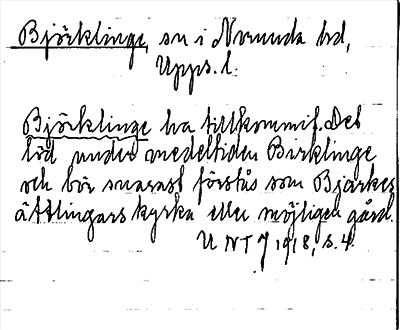 Björklinge, sn i Norunda hd,
Upps. l.
Björklinge ha tillkommit. Det
löd under medeltiden Birklinge
och bör snarast förstås som Bjarkes
ättlingars kyrka eller möjligen gård.
UNT 7/ 1918, s. 4.